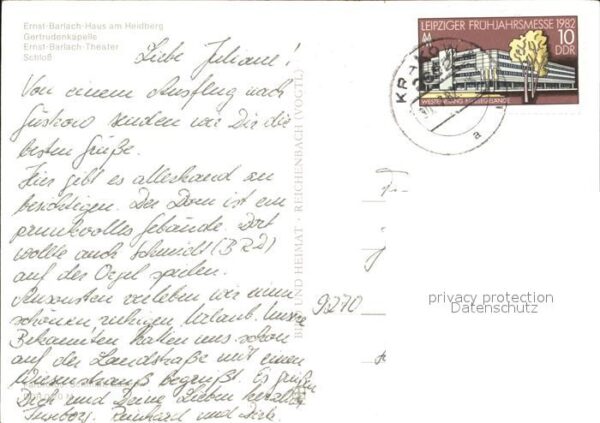 Ernst-Barlach-Haus am Heidberg
Gertrudenkapelle
Ernst-Barlach-Theater
Schloß
LEIPZIGER FRÜHJAHRSMESSE 1982
10
DDR
WESTEINGANG MESSEGELÄNDE
KRAKOW
a
Liebe Juliane!
Von einem Ausflug nach
Güstrow senden wir Dir die
besten Grüße.
Hier gibt es allerhand zu
besichtigen. Der Dom ist ein
prunkvolles Gebäude. Dort
wollte auch Schmidt (BRD)
auf der Orgel spielen.
Ansonsten verleben wir einen
schönen ruhigen Urlaub. Unsere
Bekannten hatten uns schon
auf der Landstraße mit einem
Wiesenstrauß begrüßt. Es grüßen
Dich und Deine Lieben herzlich
Ingeborg, Reinhard und Dirk.
BILD UND HEIMAT · REICHENBACH (VOGTL)
9270
privacy protection
Datenschutz